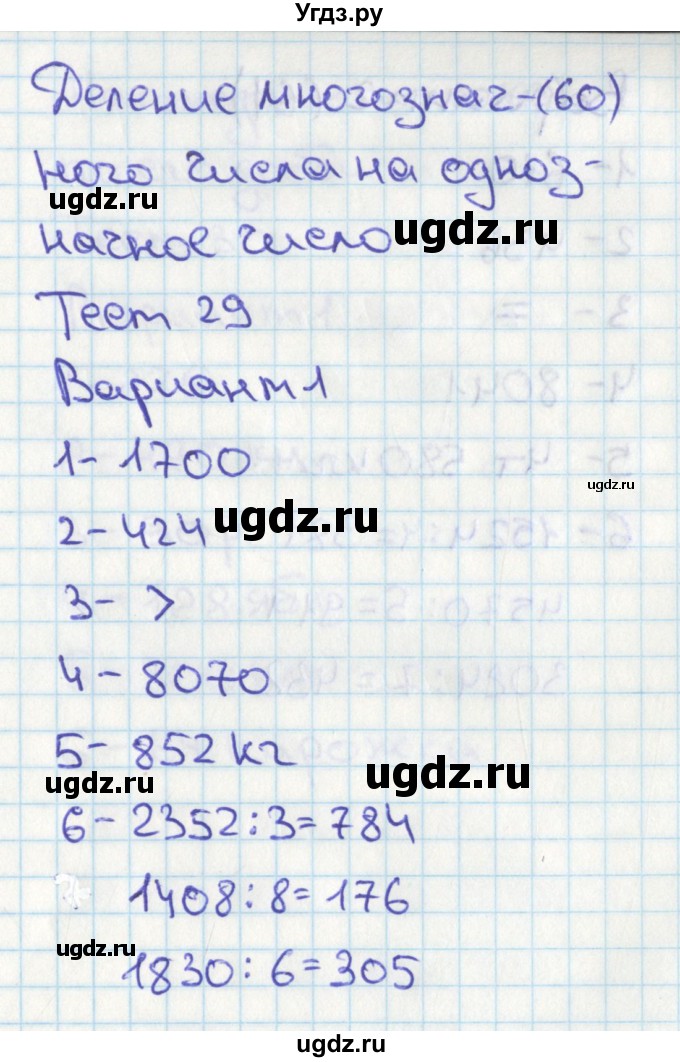 Угдз.ру
Деление многознач-(60)
ного числа на одноз-
ugdz.ru
начное число
ugdz.ru
Тест 29
Вариант 1
1- 1700
ugdz.ru
2- 424
ugdz.ru
3- >
4- 8070
5- 852 кг
ugdz.ru
ugdz.ru
6- 2352:3=784
1408:8=176
ugdz.ru
1830:6=305
ugdz.ru